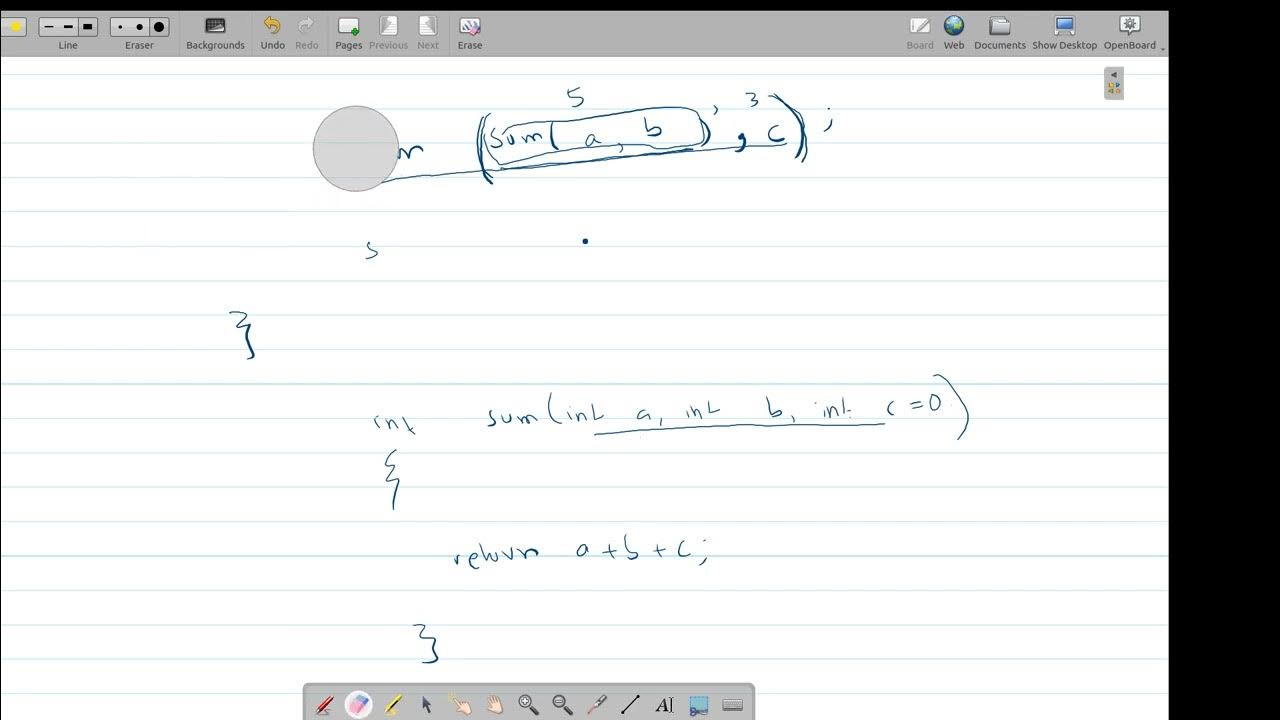 Line Eraser Backgrounds Undo Redo Pages Previous Next Erase Board Web Documents Show Desktop OpenBoard
5 3
(sum( a, b ) , c ) ;
s
}
int sum(int a, int b, int c=0)
{
return a+b+c;
}